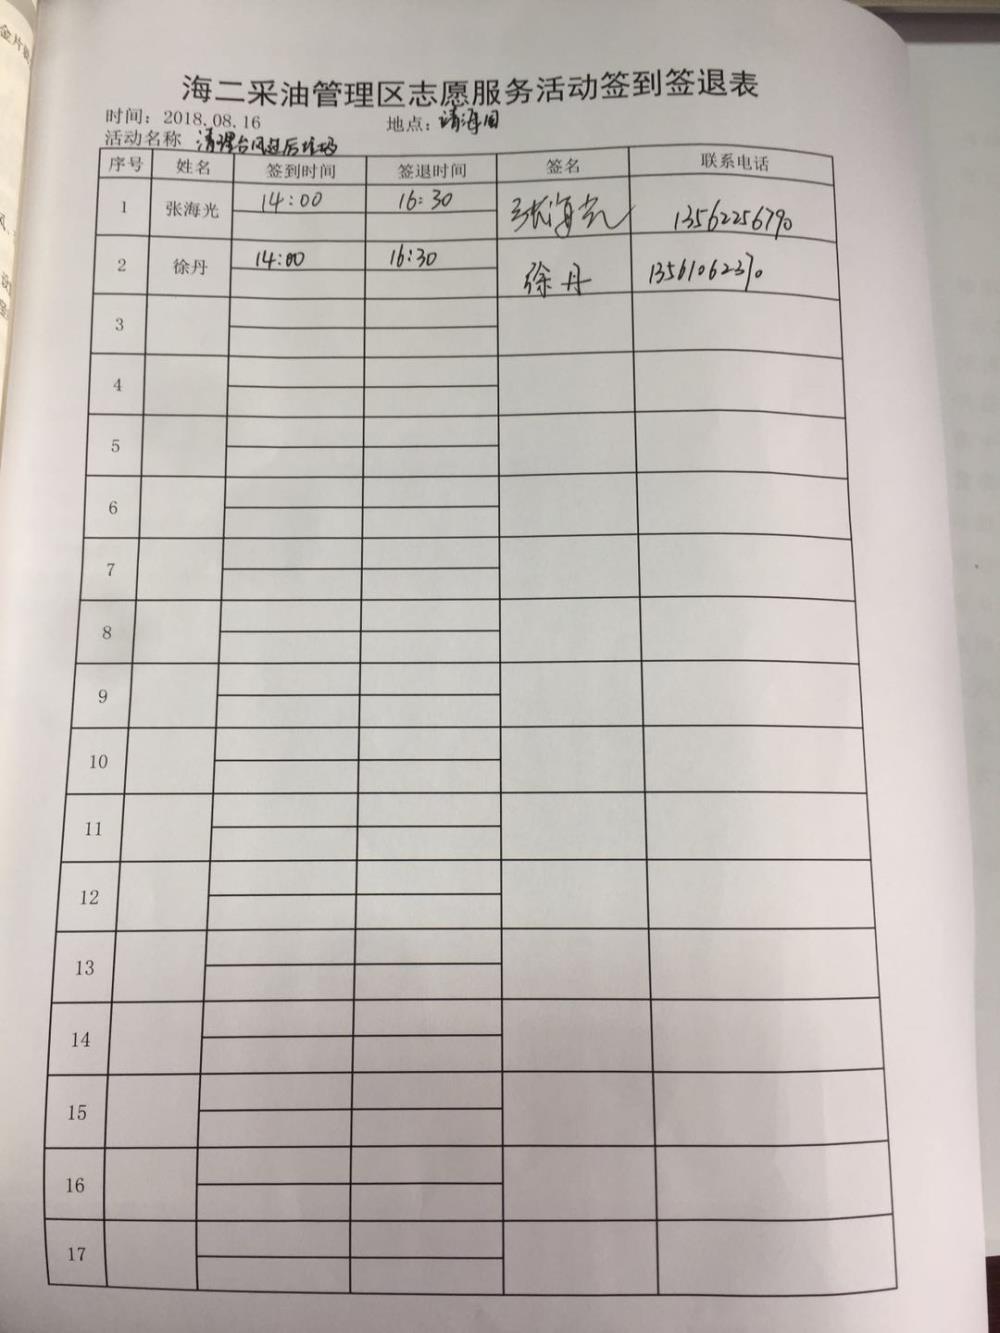 海二采油管理区志愿服务活动签到签退表
时间：2018.08.16 地点：靖海园
活动名称 清理台风过后垃圾
序号 姓名 签到时间 签退时间 签名 联系电话
1 张海光 14:00 16:30 张海光 13562256790
2 徐丹 14:00 16:30 徐丹 13561062370
3
4
5
6
7
8
9
10
11
12
13
14
15
16
17